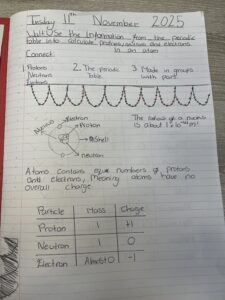 Tuesday 11th November 2025
Walt: Use the information from the periodic
table into calculate protons, neutrons and electrons
in an atom
Connect:
1. Protons 2. The periodic 3. Made in groups
Neutrons Table with
Electrons
Nucleus
electron
Proton
Shell
neutron
The of a
is about
Atoms contains equal numbers of protons
and electrons, meaning atoms have no
overall charge
Particle Mass Charge
Proton 1 +1
Neutron 1 0
Electron Almost 0 -1